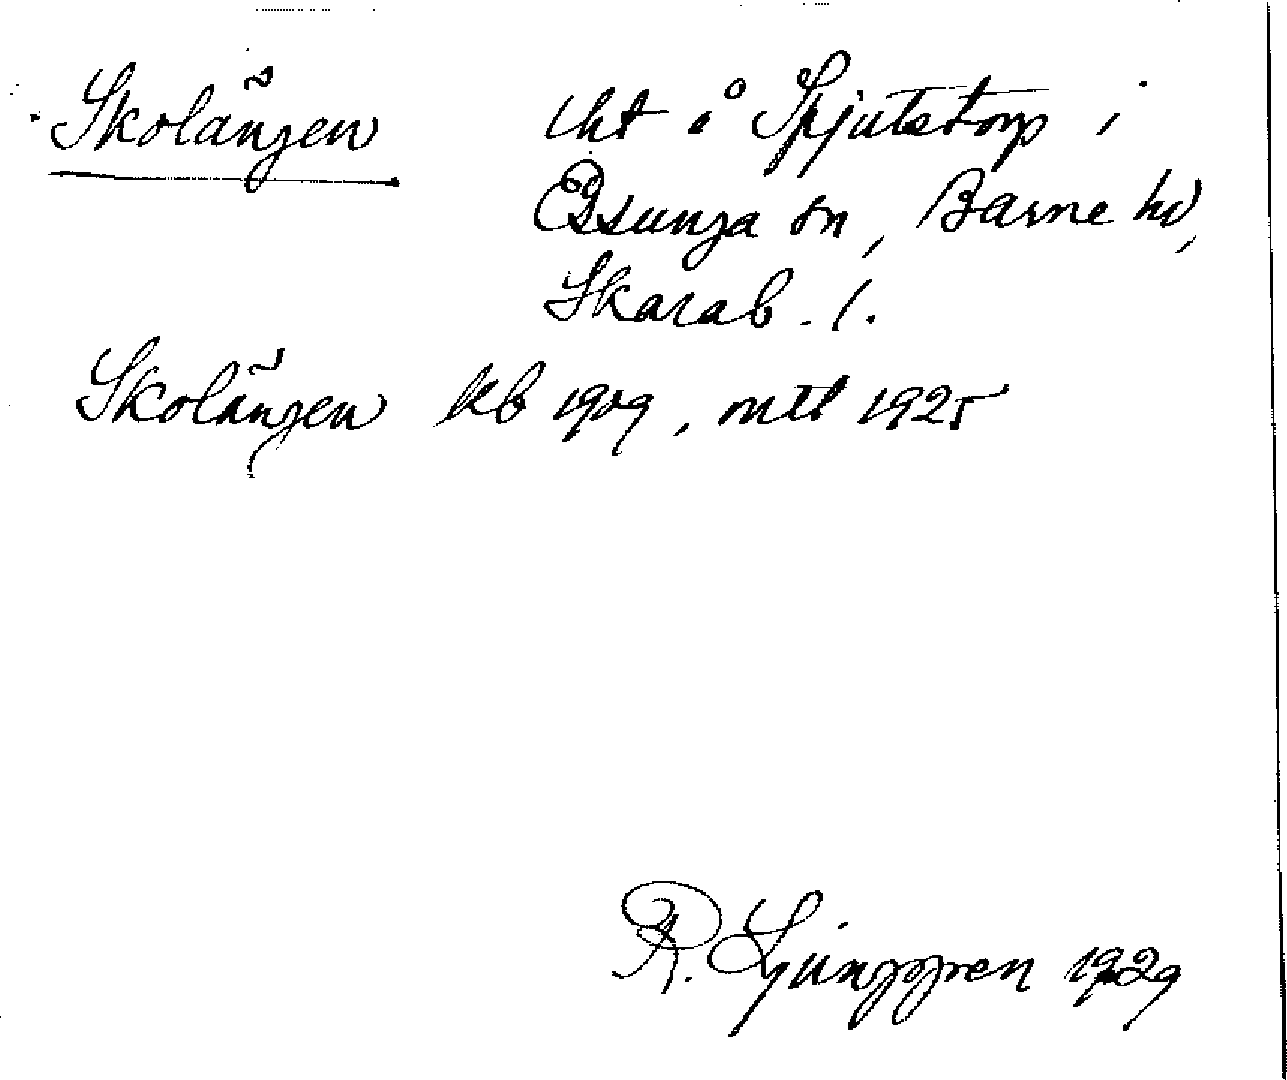 Skolängen lht å Spjutstorp i
Essunga sn, Barne hd,
Skarab. l.
Skolängen kb 1909, mtl 1925
R. Ljunggren 1929